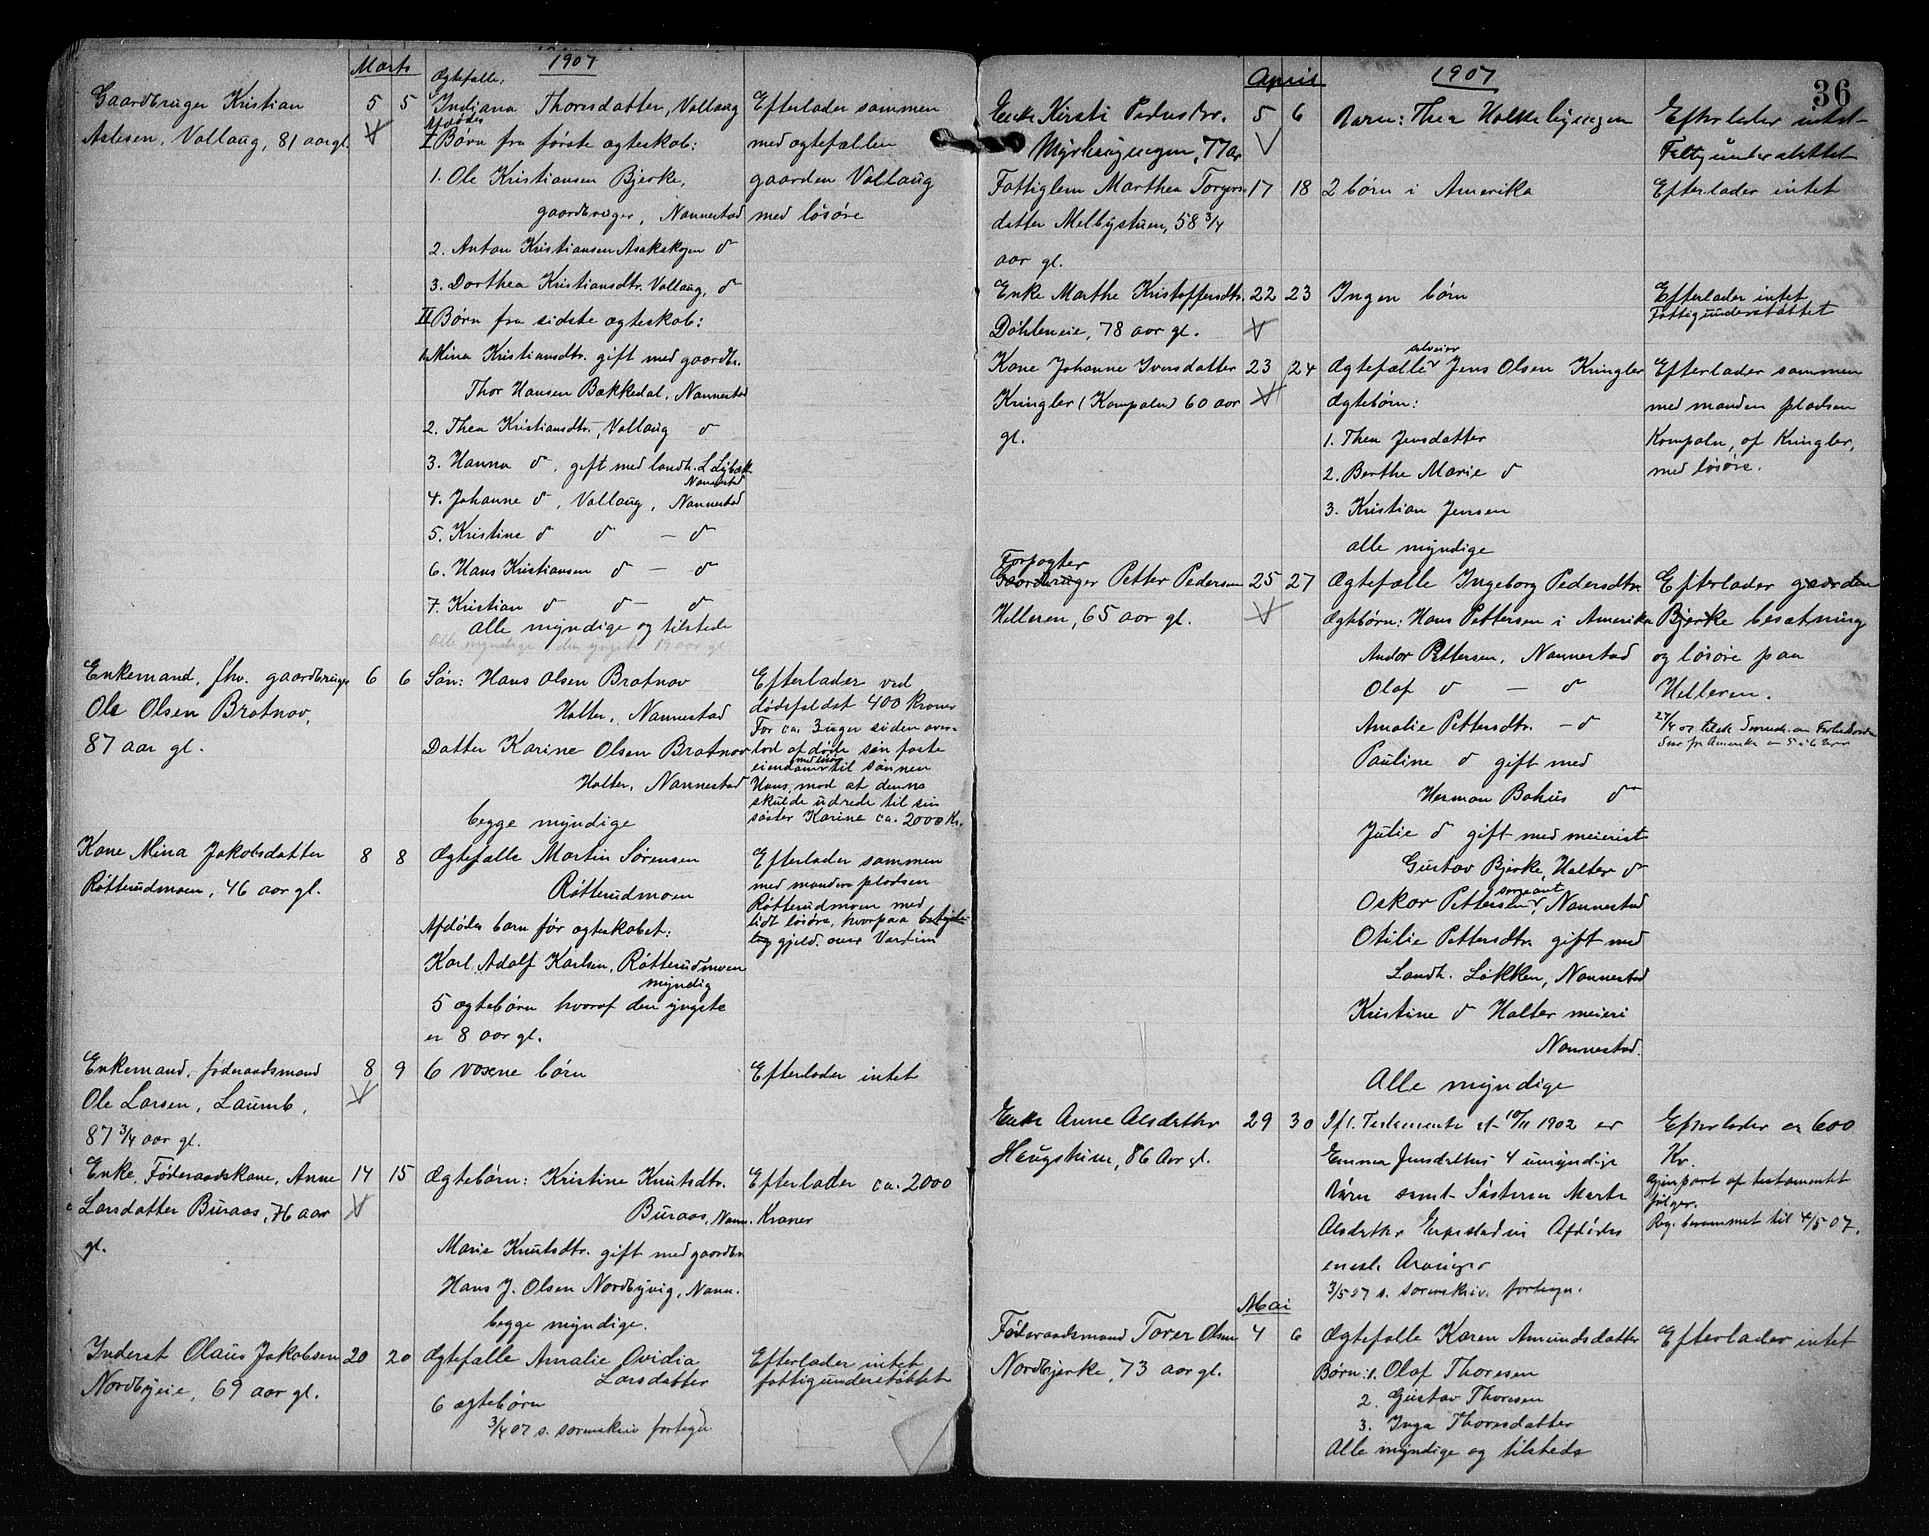 Marts
1907
Gaardbruger Kristian
Aslesen, Vollaug, 81 aar gl.
5 5
Ægtefælle:
Indiana Thorsdatter, Vollaug
Afdødes
I Børn fra første ægteskab:
1. Ole Kristiansen Bjerke,
gaardbruger, Nannestad
2. Anton Kristiansen Asakskogen d
3. Dorthea Kristiansdtr. Vollaug, d
II Børn fra sidste ægteskab:
1. Mina Kristiansdtr. gift med gaardbr.
Thor Hansen Bakkedal, Nannestad
2. Thea Kristiansdtr., Vollaug d
3. Hanna d, gift med landh. L Lybæk
Nannestad
4. Johanne d, Vollaug, Nannestad
5. Kristine d d — d
6. Hans Kristiansen d — d
7. Kristian d d — d
alle myndige og tilstede
Alle myndige den yngste aar gl
Efterlader sammen
med ægtefællen
gaarden Vollaug
med løsøre
Enkemand, fhv. gaardbruger
Ole Olsen Bratnov,
87 aar gl.
6 6
Søn: Hans Olsen Bratnov
Holter, Nannestad
Datter Karine Olsen Bratnov
Holter, Nannestad
begge myndige
Efterlader ved
dødsfaldet 400 kroner
For ca. 3 uger siden over-
lod afdøde sin faste
eiendom med løsøre til sønnen
Hans, mod at denne
skulde udrede til sin
søster Karine ca. 2000 Kr.
Kone Mina Jakobsdatter
Røtterudmoen, 46 aar gl.
8 8
Ægtefælle Martin Sørensen
Røtterudmoen
Afdødes barn før ægteskabet:
Karl Adolf Karlsen, Røtterudmoen
myndig
5 ægtebørn hvoraf den yngste
er 8 aar gl.
Efterlader sammen
med manden pladsen
Røtterudmoen med
lidt løsøre, hvorpaa betyde-
lig gjeld over Værdien
Enkemand, føderaadsmand
Ole Larsen, Laumb,
87 3/4 aar gl.
8 9
6 voxne børn
Efterlader intet
Enke, Føderaadskone, Anne
Larsdatter Buraas, 76 aar
gl.
14 15
Ægtebørn: Kristine Knutsdtr.
Buraas, Nann.
Marie Knutsdtr. gift med gaardbr.
Hans J. Olsen Nordbyvig, Nann.
begge myndige.
Efterlader ca. 2000
Kroner
Inderst Olaus Jakobsen
Nordbyeie, 69 aar gl.
20 20
Ægtefælle Amalie Ovidia
Larsdatter
6 ægtebørn
3/4 07 s. sorenskriv fortegn
Efterlader intet
fattigunderstøttet
36
April
1907
Enke Kirsti Pedersdtr.
Myrbyengen, 77 ar
5 6
Barn: Thea Holkebyengen
Efterlader intet
Fattigunderstøttet
Fattiglem Marthea Torgers
datter Melbystuen, 58 3/4
aar gl.
17 18
2 børn i Amerika
Efterlader intet
Enke Marthe Kristoffersdtr.
Døhleneie, 78 aar gl.
22 23
Ingen børn
Efterlader intet
Fattigunderstøttet
Kone Johanne Iversdatter
Kringler (Kompaln) 60 aar
gl.
23 24
Ægtefælle selveier Jens Olsen Kringler
Ægtebørn:
1. Thea Jensdatter
2. Berthe Marie d
3. Kristian Jensen
alle myndige
Efterlader sammen
med manden pladsen
Kompaln, af Kringler,
med løsøre.
Forpagter
Gaardbruger Petter Pedersen
Helleren, 65 aar gl.
25 27
Ægtefælle Ingeborg Pedersdtr.
Ægtebørn: Hans Pettersen i Amerika
Andor Pettersen, Nannestad
Olaf d — d
Amalie Pettersdtr. — d
Pauline d gift med
Herman Bahus d
Julie d gift med meierist
Gustav Bjerke, Holter d
Oskar Pettersen sergeant, Nannestad
Otilie Pettersdtr. gift med
Landh. Løkken, Nannestad
Kristine d Holter meieri
Nannestad.
Alle myndige
Efterlader gaarden
Bjerke besætning
og løsøre paa
Helleren.
27/4 07
Enke Anne Olsdatter
Haugstuen, 86 Aar gl.
29 30
Ifl. Testamente af 10/11 1902 er
Emma Jensdatters 4 umyndige
Børn samt Søsteren Marte
Olsdatter Afdødes
eneste Arvinger
3/5 07 s. sorenskriv. fortegn.
Efterlader ca 600
Kr.
Gjenpart af testamentet
følger.
Reg. berammet til 4/5 07.
Mai
Føderaadsmand Torer Olsen
Nordbjerke, 73 aar gl.
4 6
Ægtefælle Karen Amundsdatter
Børn: 1. Olaf Thoresen
2. Gustav Thoresen
3. Inga Thoresdatter
Alle myndige og tilstede
Efterlader intet